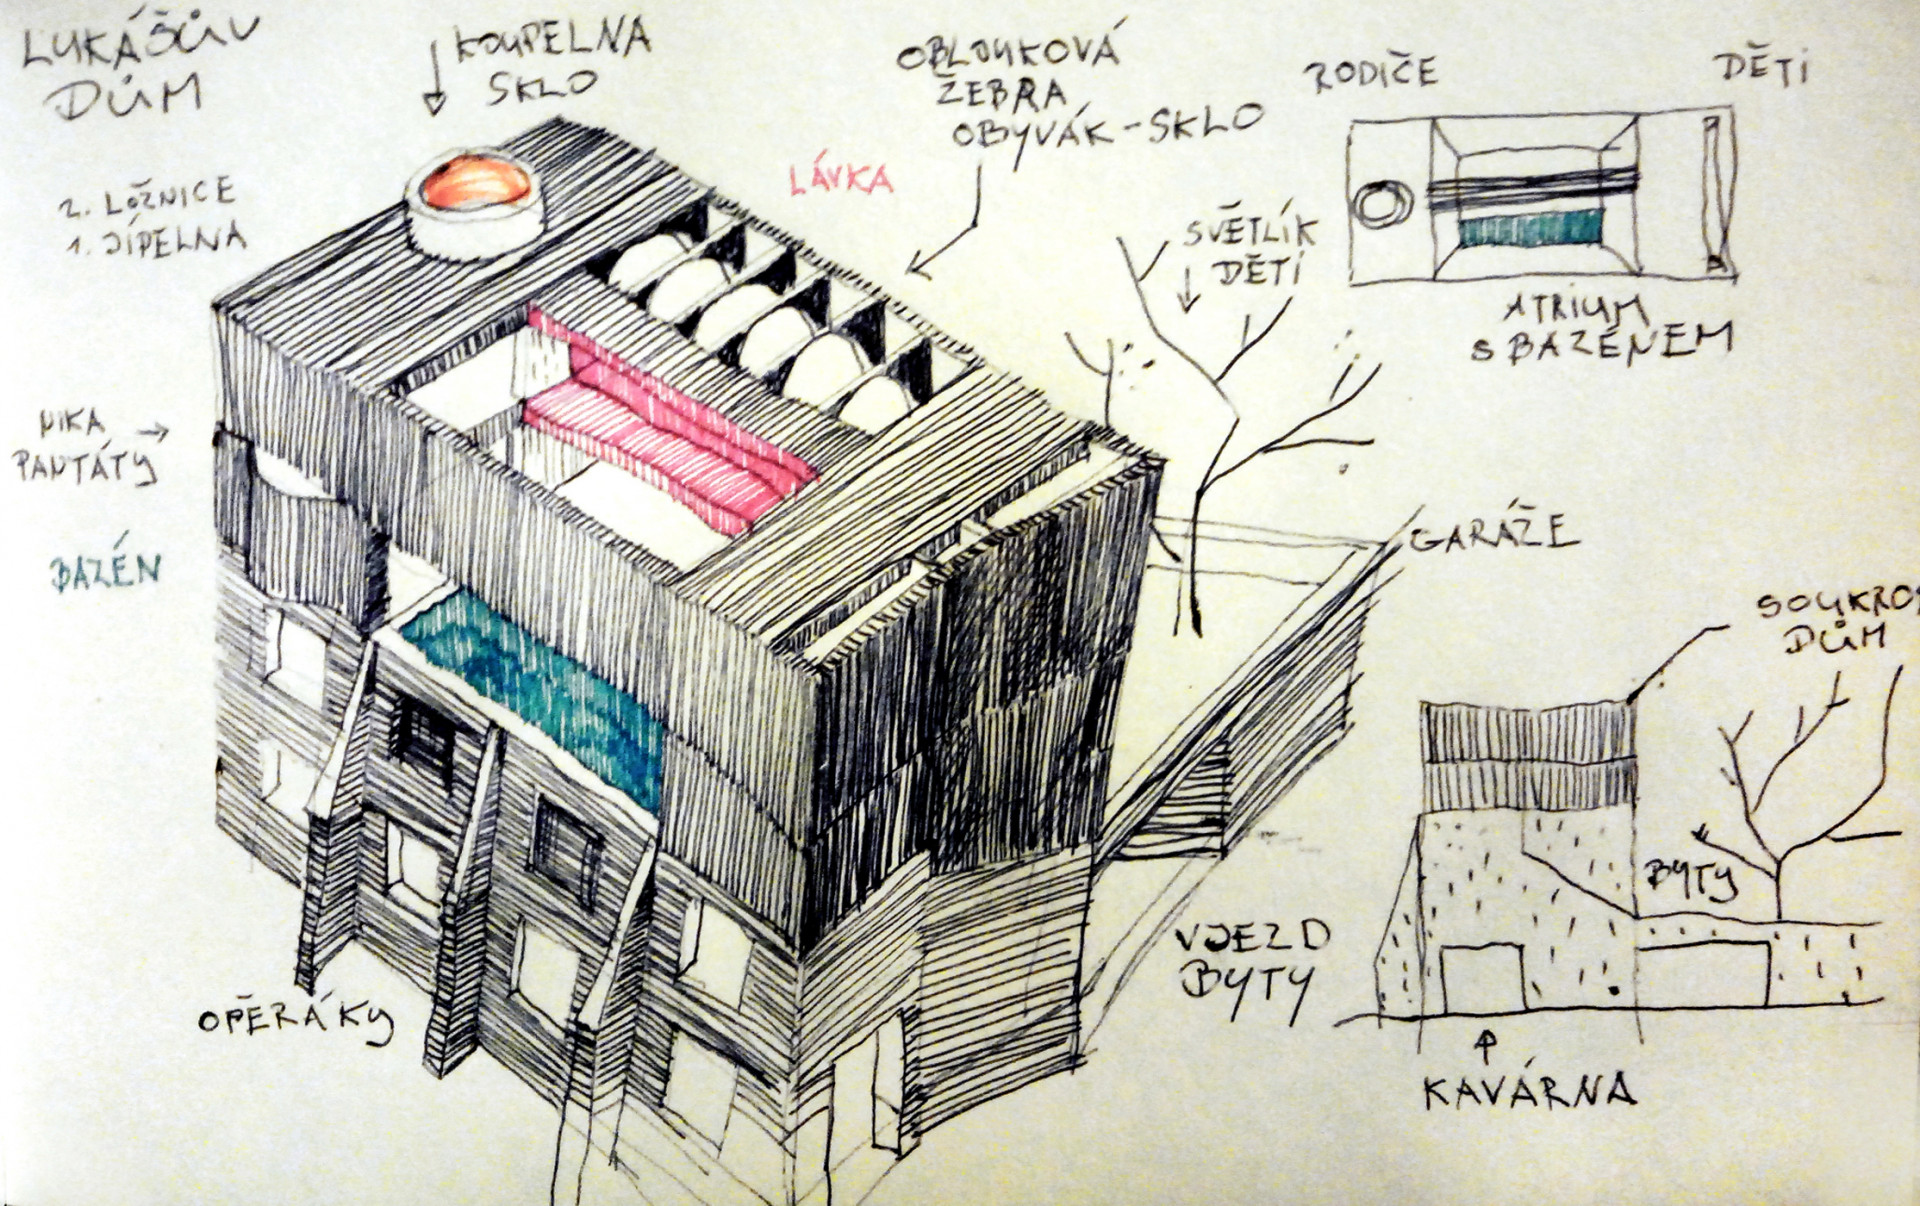 LUKÁŠŮV
DŮM
KOUPELNA
SKLO
OBLOUKOVÁ
ŽEBRA
OBYVÁK-SKLO
RODIČE
DĚTI
LÁVKA
2. LOŽNICE
1. JÍDELNA
SVĚTLÍK
DĚTI
ATRIUM
S BAZÉNEM
NIKA
PANTÁTY
BAZÉN
GARÁŽE
SOUKRO
DŮM
BYTY
VJEZD
BYTY
OPĚRÁKY
KAVÁRNA